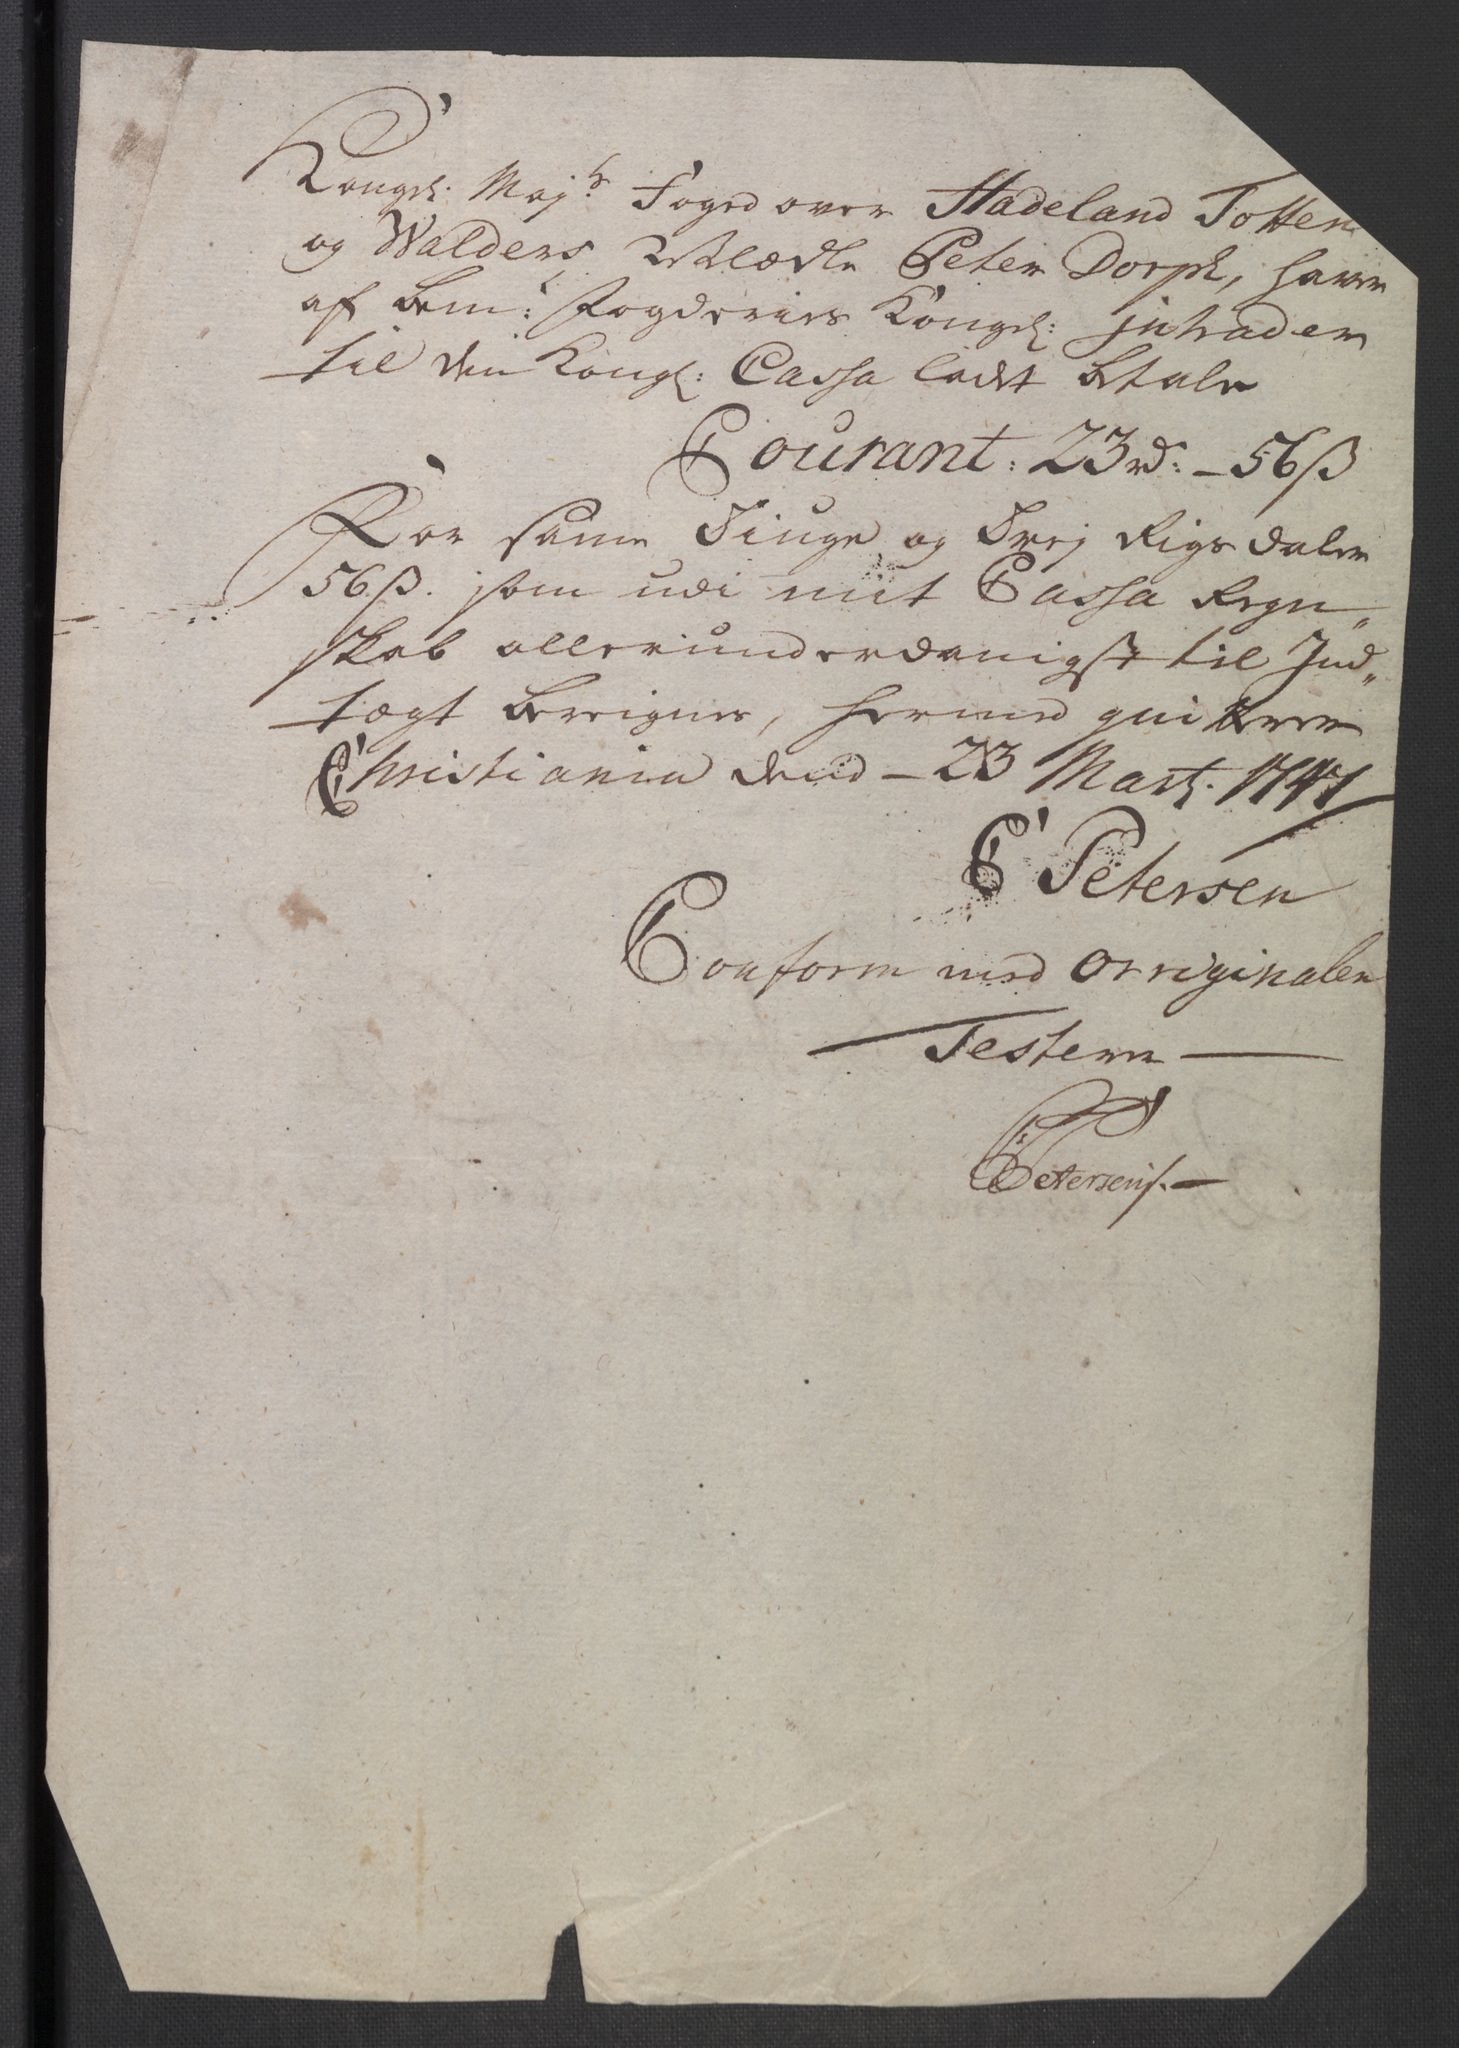 Kongel: Majts Foged over Hadeland Totten
og Walders, Velædle Peter Dorph, haver
af bemte Fogderies Kongel: jntrader
til den Kongl: Cassa ladet betale
Courant: 23 rd: – 56 ß
For same Tiuge og Trej Rigsdaler
56 ß. som udi mit Cassa Regn„
skab allerunderdanigst til Ind„
tægt bereignes, hermed quiterer
Christiania dend – 23 Marti: 1747
C Petersen
Conform med orriginalen
Testerer
Petersen